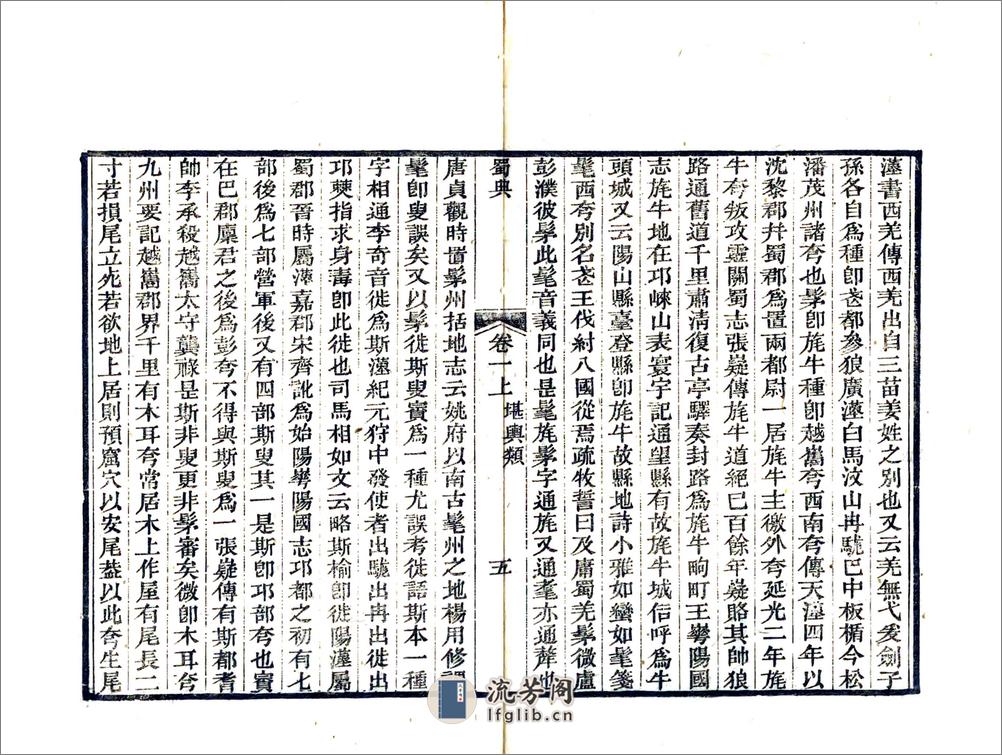 漢書西羌傳西羌出自三苗姜姓之別也又云羌無弋爰劍子
孫各自爲種卽㲠都參狼廣漢白馬汶山冉駹巴中板楯今松
潘茂州諸夸也髳卽旄牛種卽越巂夸西南夸傳天漢四年以
沈黎郡幷蜀郡爲置兩都尉一居旄牛主徼外夸延光二年旄
牛夸叛攻靈關蜀志張嶷傳旄牛道絕巳百餘年嶷賂其帥狼
路通舊道千里肅清復古亭驛奏封路爲旄牛㽛町王㠔陽國
志旄牛地在邛崍山表寰宇記通望縣有故旄牛城信呼爲牛
頭城又云陽山縣臺登縣卽旄牛故縣地詩小雅如蠻如髦箋
髦西夸別名㲠王伐紂八國從焉疏牧誓曰及庸蜀羌髳微盧
彭濮彼髳此髦音義同也是髦旄髳字通旄又通耄亦通犛也
蜀典
卷一上
堪輿類
五
唐貞觀時置髳州括地志云姚府以南古髦州之地楊用修謂
髦卽叟誤矣又以髳徙斯叟實爲一種尤誤考徙語斯本一種
字相通李奇音徙爲斯漢紀元狩中發使者出駹出冉出徙出
邛僰指求身毒卽此徙也司馬相如文云略斯榆卽徙陽漢屬
蜀郡晉時屬漢嘉郡宋齊訛爲始陽㠔陽國志邛都之初有七
部後爲七部營軍後又有四部斯叟其一是斯卽邛部夸也實
在巴郡廩君之後爲彭夸不得與斯叟爲一張嶷傳有斯都耆
帥李承殺越巂太守龔祿是斯非叟更非髳審矣微卽木耳夸
九州要記越巂郡界千里有木耳夸常居木上作屋有尾長二
寸若損尾立死若欲地上居則預窟穴以安尾葢以此夸生尾
流芳阁
lfglib.cn